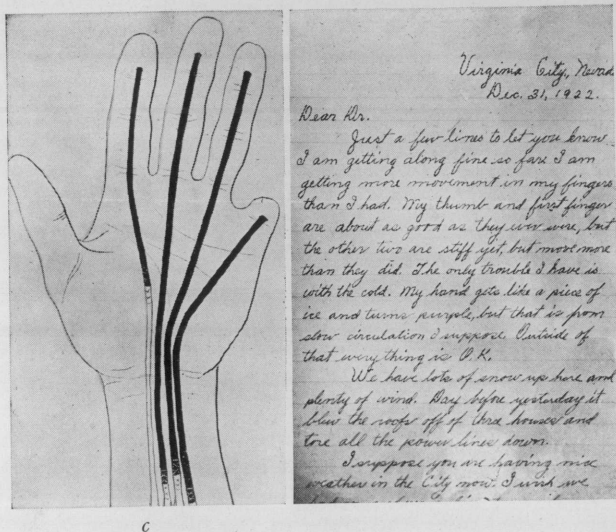 Virginia City, Nevad
Dec. 31, 1922.
Dear Dr.
Just a few lines to let you know
I am getting along fine so far. I am
getting more movement in my fingers
than I had. My thumb and first finger
are about as good as they ever were, but
the other two are stiff yet, but move more
than they did. The only trouble I have is
with the cold. My hand gets like a piece of
ice and turns purple, but that is from
slow circulation I suppose. Outside of
that everything is O.K.
We have lots of snow up here and
plenty of wind. Day before yesterday it
blew the roofs off of three houses and
tore all the power lines down.
I suppose you are having nice
weather in the City now. I wish we
C